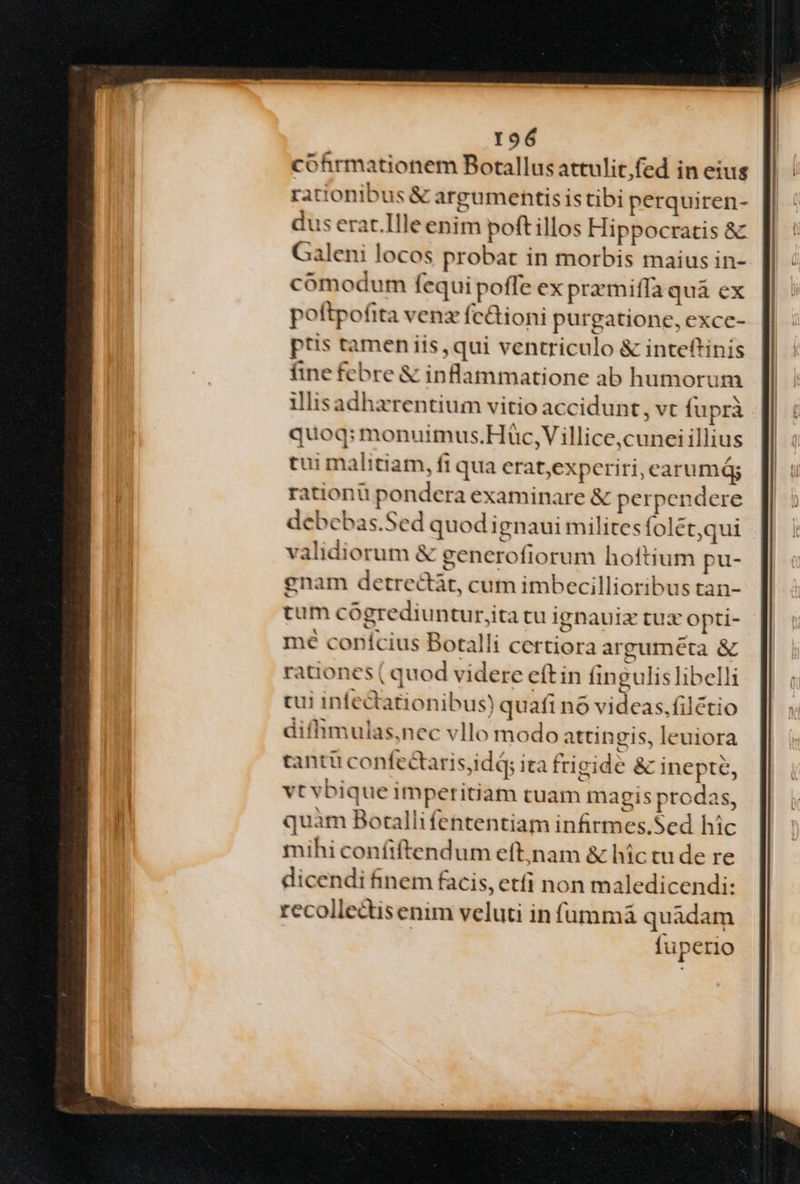 196
cõfirmationem Botallus attulit,ſed in eius
rationibus & argumentis is tibi perquiren-
dus erat.Ille enim poſt illos Hippocratis &
Galeni locos probat in morbis maius in-
cõmodum ſequi poſſe ex præmiſſa quã ex
poſtpoſita venæ ſectioni purgatione, exce-
ptis tamen iis, qui ventriculo & inteſtinis
ſine febre & inflammatione ab humorum
illis adhærentium vitio accidunt, vt ſuprà
quoq; monuimus.Hûc,Villice,cunei illius
tui malitiam, ſi qua erat,experiri, earumq́;
rationũ pondera examinare & perpendere
debebas.Sed quod ignaui milites ſolẽt,qui
validiorum & generoſiorum hoſtium pu-
gnam detrectãt, cum imbecillioribus tan-
tum cõgrediuntur,ita tu ignauiæ tuæ opti-
mé conſcius Botalli certiora argumẽta &
rationes ( quod videre eſt in ſingulis libelli
tui inſectationibus) quaſi nõ videas,ſilẽtio
diſſimulas,nec vllo modo attingis, leuiora
tantũ conſectaris,idq́; ita frigidè & ineptè,
vt vbique imperitiam tuam magis prodas,
quàm Botalli ſententiam infirmes.Sed hîc
mihi conſiſtendum eſt,nam & hîc tu de re
dicendi finem facis, etſi non maledicendi:
recollectis enim veluti in ſummã quãdam
ſuperio